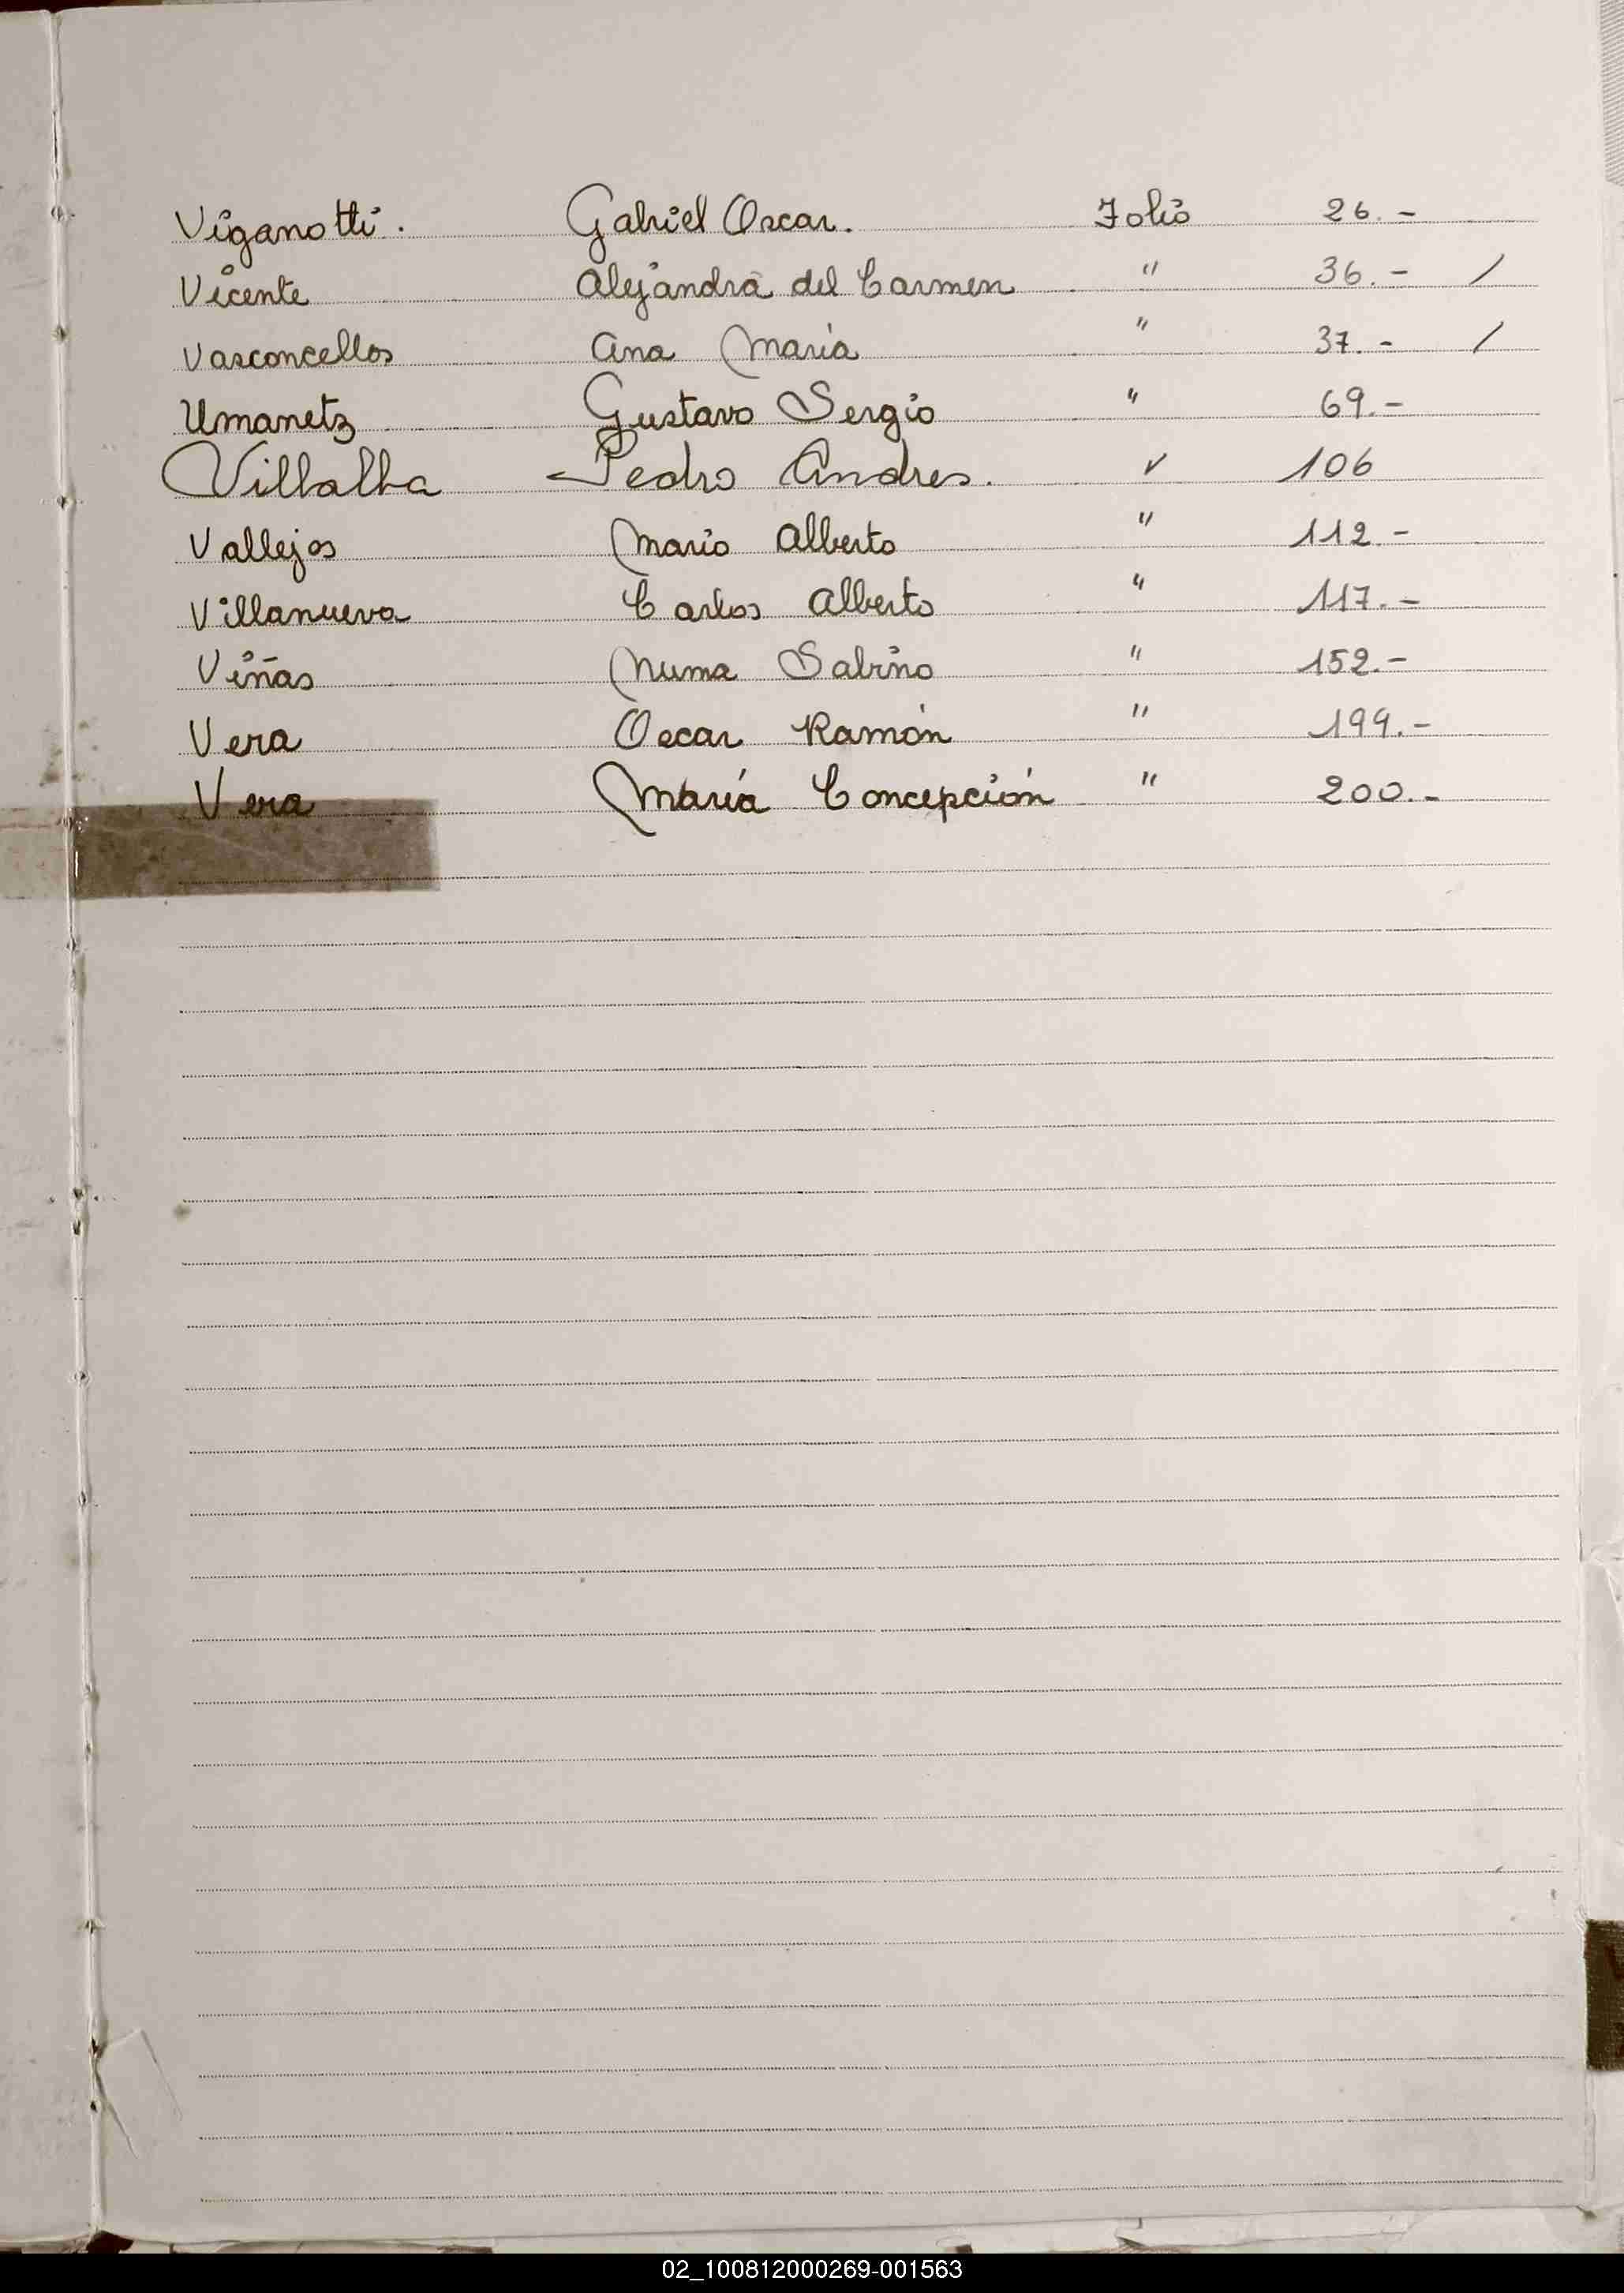 Viganotti. Gabriel Oscar. Folio 26.-
Vicente Alejandra del Carmen " 36.- /
Vasconcellos Ana María " 37.- /
Umanetz Gustavo Sergio " 69.-
Villalba Pedro Andres. " 106
Vallejos Mario Alberto " 112.-
Villanueva Carlos Alberto " 117.-
Viñas Numa Sabino " 152.-
Vera Oscar Ramón " 199.-
Vera María Concepción " 200.-
02_100812000269-001563